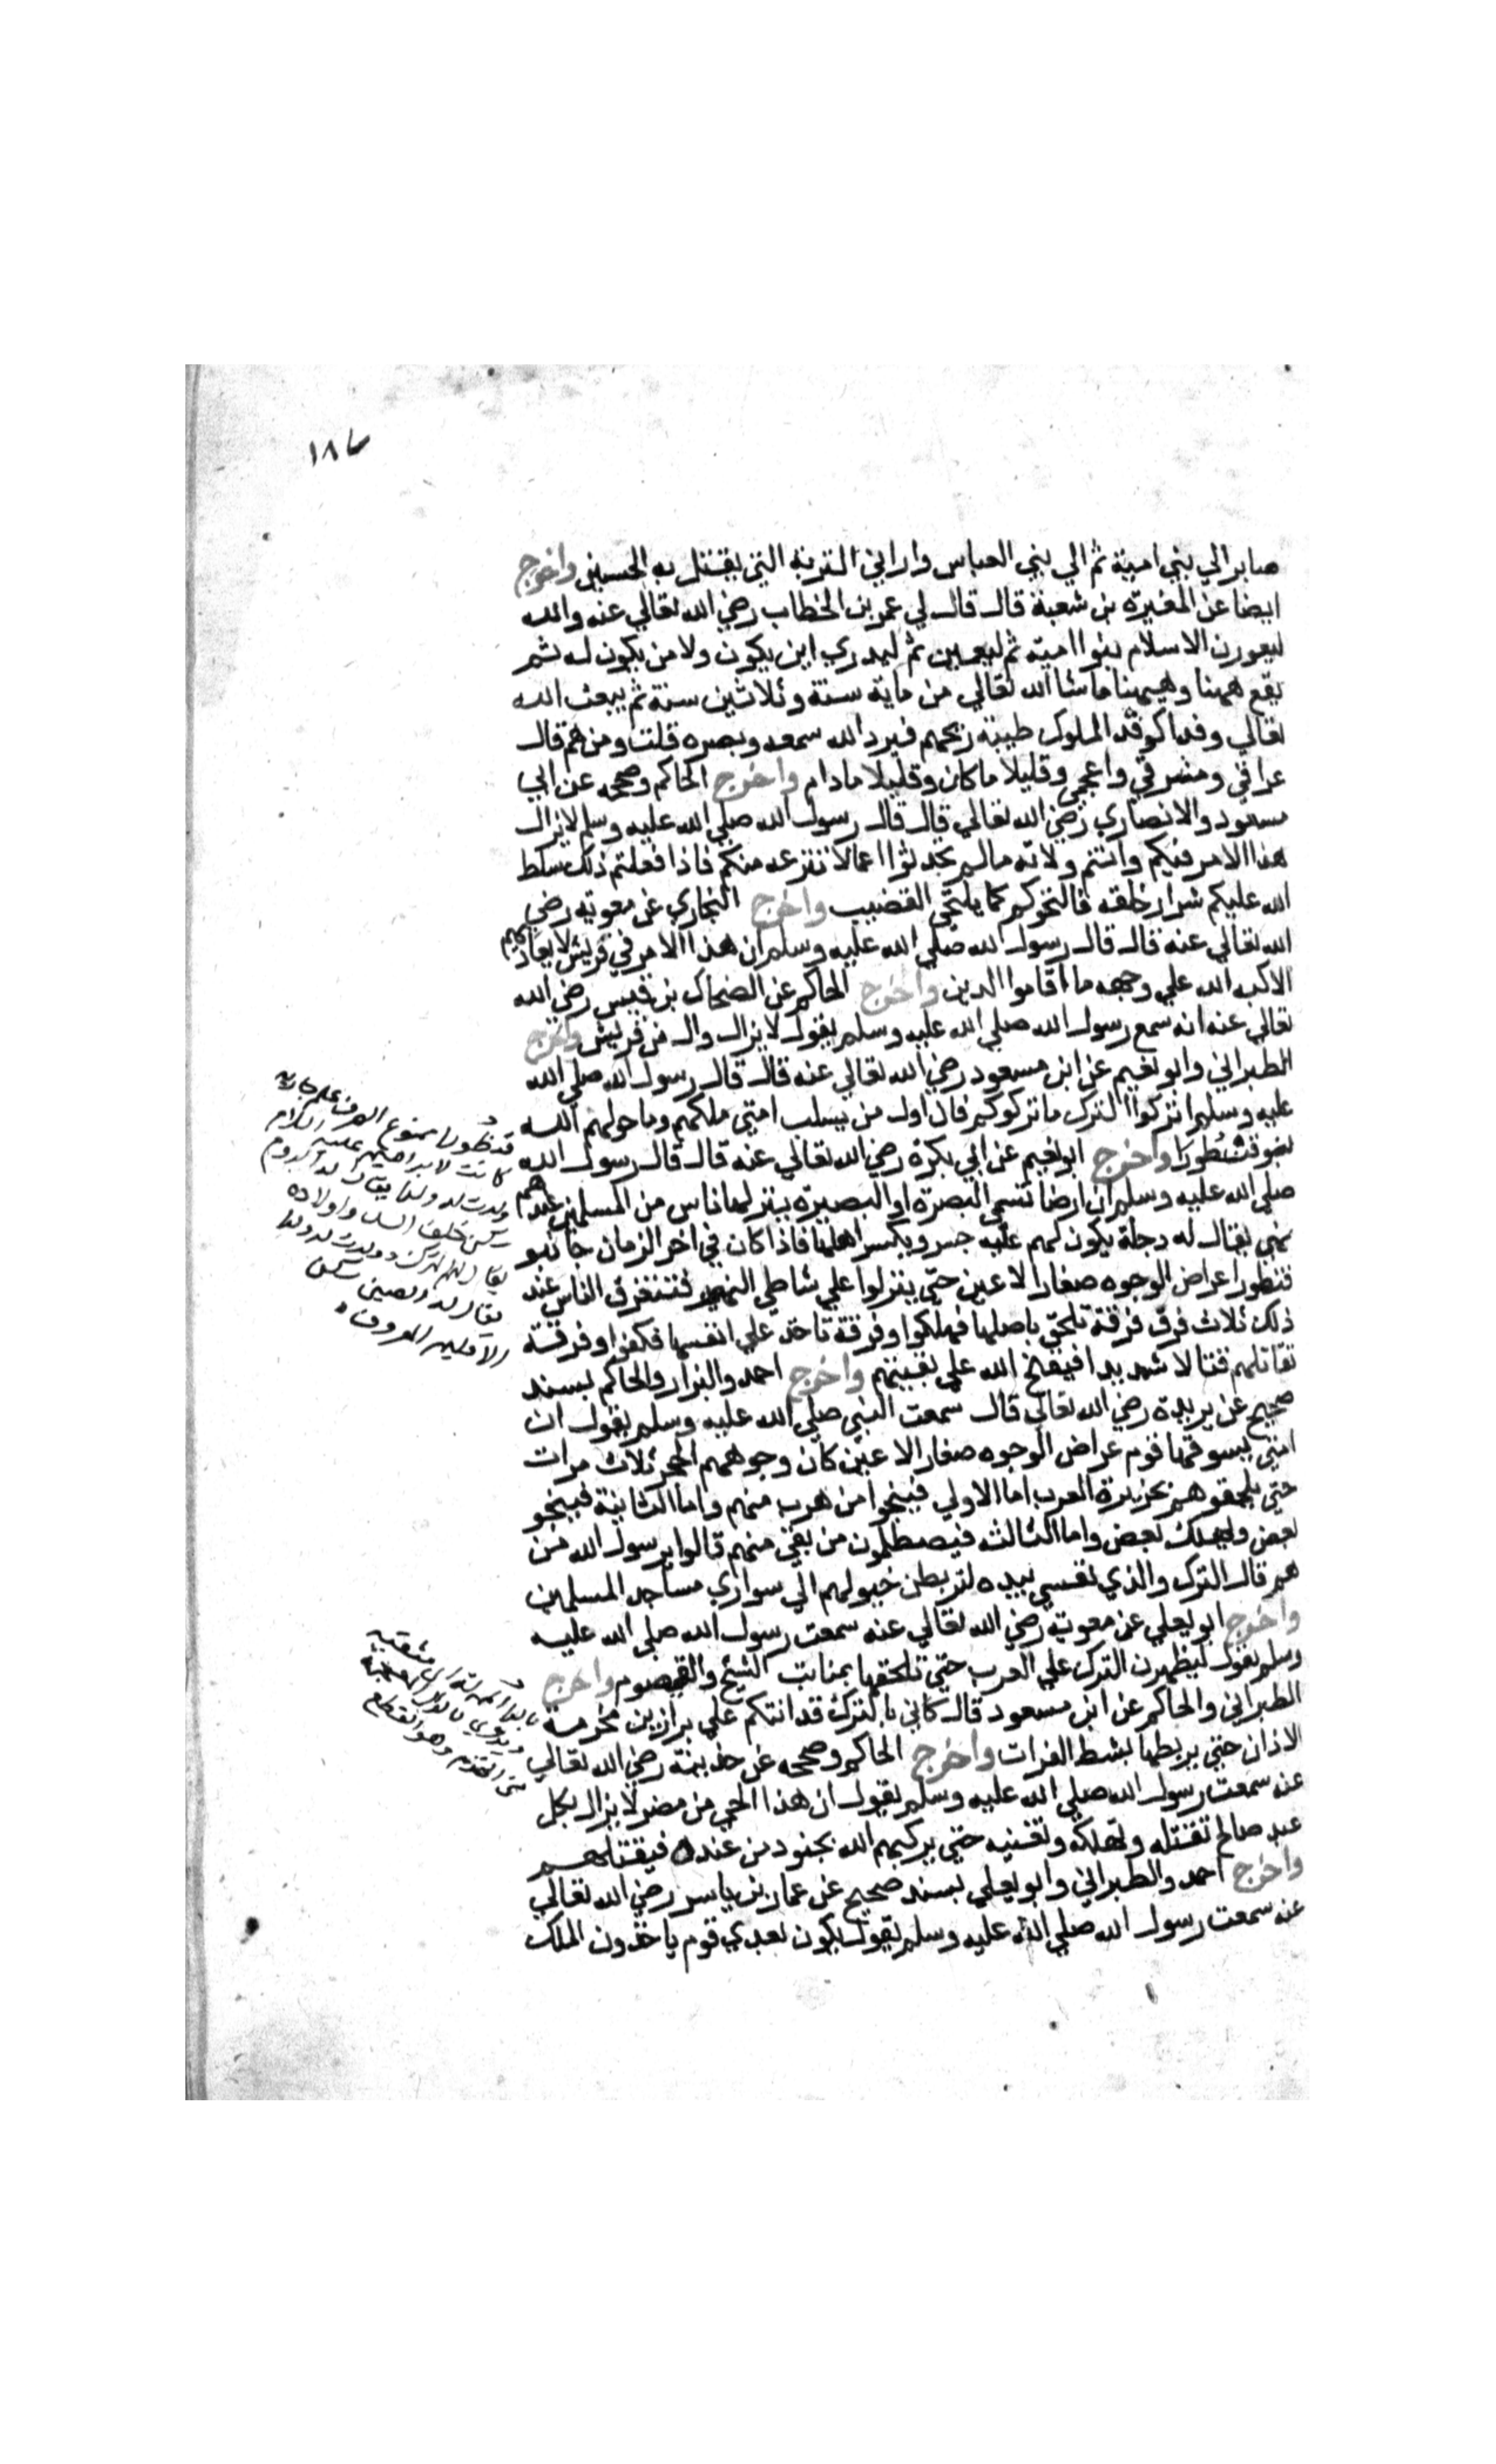 ١٨٦
صاير الي بني امية ثم الي بني العباس واراني التربة التي يقتل به الحسين واخرج
ايضا عن المغيرة بن شعبة قال قال لي عمر بن الخطاب رضي الله تعالي عنه والله
ليعورن الاسلام بنوا امية ثم ليعمين ثم ليدري اين يكون ولا من يكون له ثم
يقع ههنا وهيهنا ما شا الله تعالي من ماية سنة وثلاثين سنة ثم يبعث الله
تعالي وفدا كوفد الملوك طيبة ريحهم فيرد الله سمعه وبصره قلت ومن هم قال
عراقي ومشرقي واعجمي وقليلا ما كان وقليلا ما دام واخرج الحاكم وصححه عن ابي
مسعود والانصاري رضي الله تعالي قال قال رسول الله صلي الله عليه وسلم لا يزال
هذا الامر فيكم وانتم ولاته مالم تحدثوا اعمالا تنزعه منكم فاذا فعلتم ذلك سلط
الله عليكم شرار خلقه فالتحوكم كما يلتحي القضيب واخرج البخاري عن معوية رضي
الله تعالي عنه قال قال رسول الله صلي الله عليه وسلم ان هذا الامر في قريش لا يعاديهم
الا كبه الله علي وجهه ما اقاموا الدين واخرج الحاكم عن الضحاك بن قيس رضي الله
تعالي عنه انه سمع رسول الله صلي الله عليه وسلم يقول لا يزال وال من قريش واخرج
الطبراني وابو نعيم عن ابن مسعود رضي الله تعالي عنه قال قال رسول الله صلي الله
عليه وسلم اتركوا الترك ما تركوكم فان اول من يسلب امتي ملكهم وما خولهم الله
بنو قنطورا واخرج ابو نعيم عن ابي بكرة رضي الله تعالي عنه قال قال رسول الله
صلي الله عليه وسلم ان ارضا تسمي البصرة او البصيرة ينزلها ناس من المسلمين عندهم
نهر يقال له دجلة يكون لهم عليه جسر ويكثر اهلها فاذا كان في اخر الزمان جا بنو
قنطورا عراض الوجوه صغار الاعين حتي ينزلوا علي شاطي النهر فتتفرق الناس عند
ذلك ثلاث فرق فرقة تلحق باصلها فهلكوا وفرقة تاخذ علي انفسها فكفروا وفرقة
تقاتلهم قتالا شديدا فيفتح الله علي بقيتهم واخرج احمد والبزار والحاكم بسند
صحيح عن بريدة رضي الله تعالي قال سمعت النبي صلي الله عليه وسلم يقول ان
امتي يسوقها قوم عراض الوجوه صغار الاعين كان وجوههم الحجر ثلاث مرات
حتي يلحقوهم بجزيرة العرب اما الاولي فينجوا من هرب منهم واما الثانية فينجو
بعض ويهلك بعض واما الثالثه فيصطلمون من بقي منهم قالوا يرسول الله من
هم قال الترك والذي نفسي بيده لتربطن خيولهم الي سواري مساجد المسلمين
واخرج ابو يعلي عن معوية رضي الله تعالي عنه سمعت رسول الله صلي الله عليه
وسلم يقول ليظهرن الترك علي العرب حتي تلحقها بمنابت الشيح والقيصوم واخرج
الطبراني والحاكم عن ابن مسعود قال كاني بالترك قد اتتكم علي براذين مخرمة
الاذان حتي يربطها بشط الفرات واخرج الحاكم وصححه عن حذيفة رضي الله تعالي
عنه سمعت رسول الله صلي الله عليه وسلم يقول ان هذا الحي من مضر لا يزال بكل
عبد صالح تقتله وتهلكه وتفنيه حتي يركبهم الله بجنود من عنده فيقتلهم
واخرج احمد والطبراني وابو يعلي بسند صحيح عن عمار بن ياسر رضي الله تعالي
عنه سمعت رسول الله صلي الله عليه وسلم يقول يكون بعدي قوم ياخذون الملك
قنطورا ممنوع الصرف علم جارية
كانت لابراهيم عليه السلام
ولدت له ولدا يقال له الروم
يقال لهم الترك وولدت له ولدا
يقال له الصين سكن
الاقليم المعروف